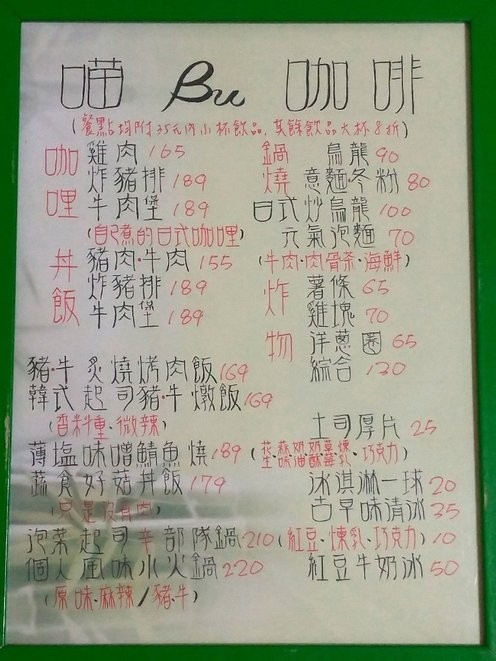 喵 Bu 咖啡
(餐點均附35元內小杯飲品,其餘飲品大杯8折)
咖哩
雞肉 165
炸豬排 189
牛肉堡 189
(自己煮的日式咖哩)
丼飯
豬肉·牛肉 155
炸豬排 189
牛肉堡 189
豬·牛 炙燒烤肉飯 169
韓式起司豬·牛燉飯 169
(香料重·微辣)
薄塩味噌鯖魚燒 189
蔬食好菇丼飯 179
(只是沒有肉)
泡菜起司辛部隊鍋 210
個人風味小火鍋 220
(原味·麻辣/豬·牛)
鍋燒
烏龍 90
意麵·冬粉 80
日式炒烏龍 100
元氣泡麵 70
(牛肉·肉骨茶·海鮮)
炸物
薯條 65
雞塊 70
洋蔥圈 65
綜合 130
土司厚片 25
(花生·蒜味·奶油·奶酥·草莓·煉乳·巧克力)
冰淇淋一球 20
古早味清冰 35
(紅豆·煉乳·巧克力) 10
紅豆牛奶冰 50